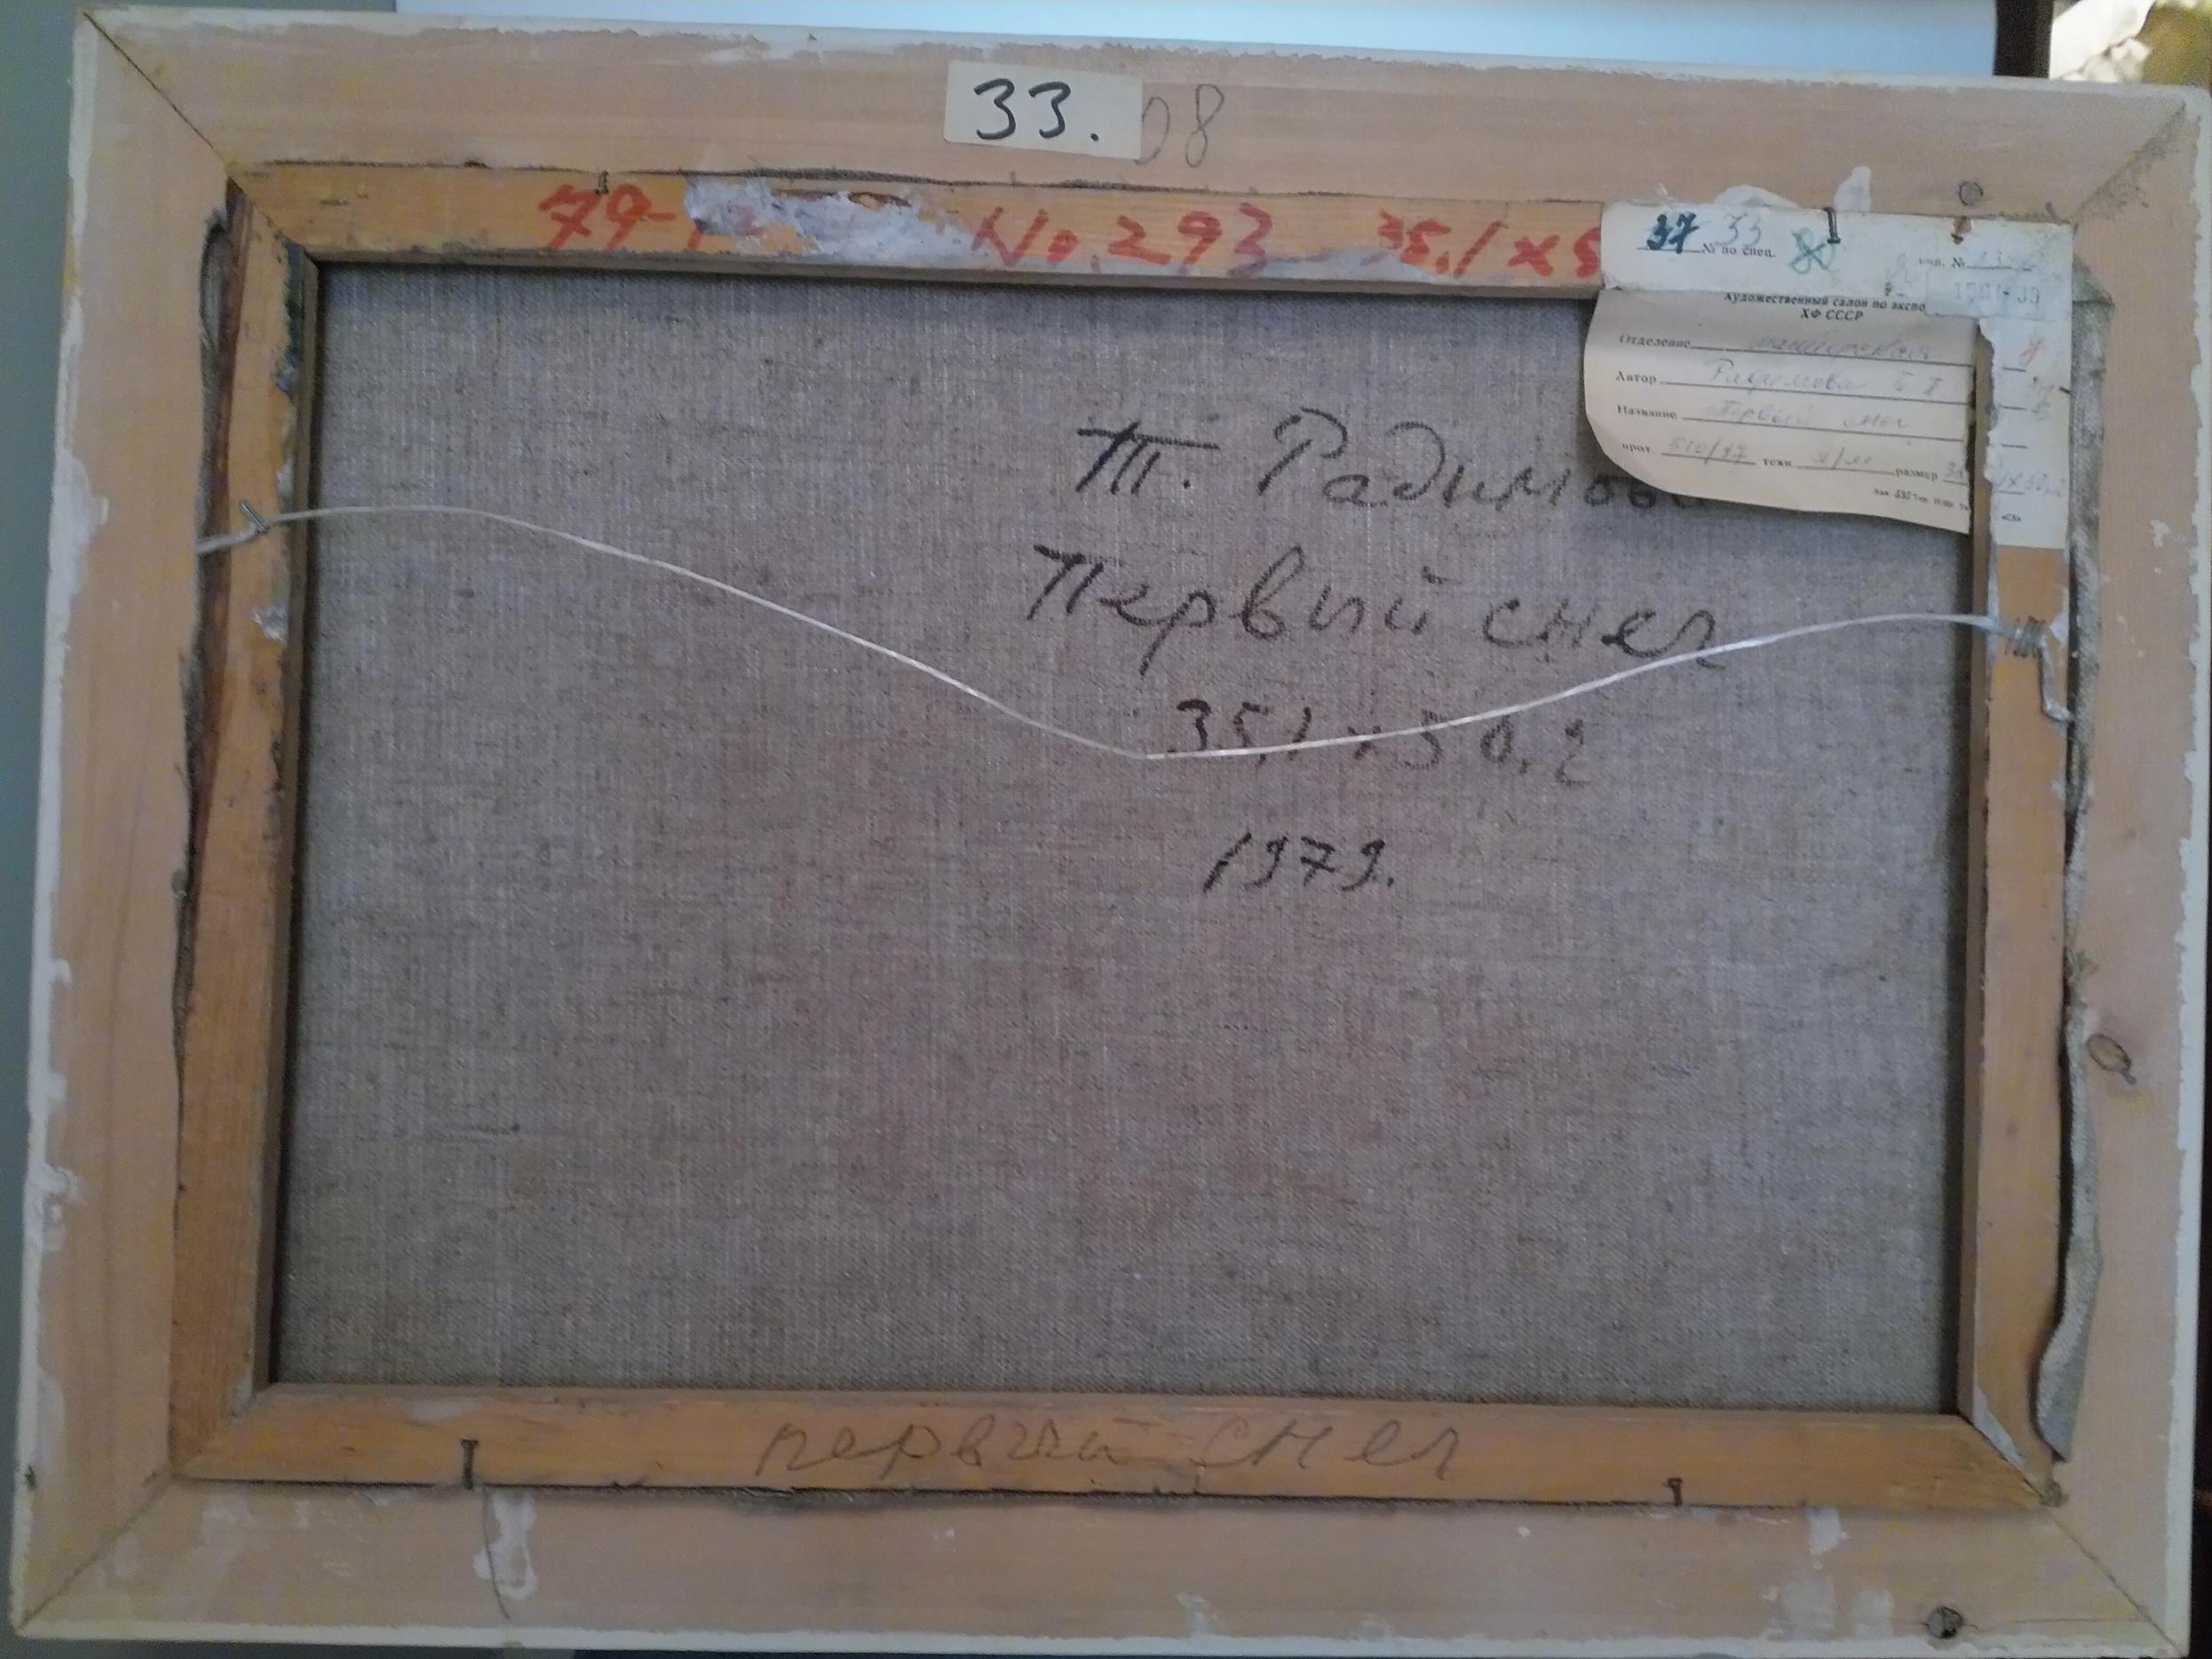 33. 08
79- No. 293 35.1 x 5
37 33
№ по спец. инв. №
Художественный салон по экспо
ХФ СССР
Отделение
Автор Радимова Т. П
Название Первый снег
прот. 510/97 техн. х/м размер 35
Т. Радимова
Первый снег
35,1 x 50.2
1979.
первый снег